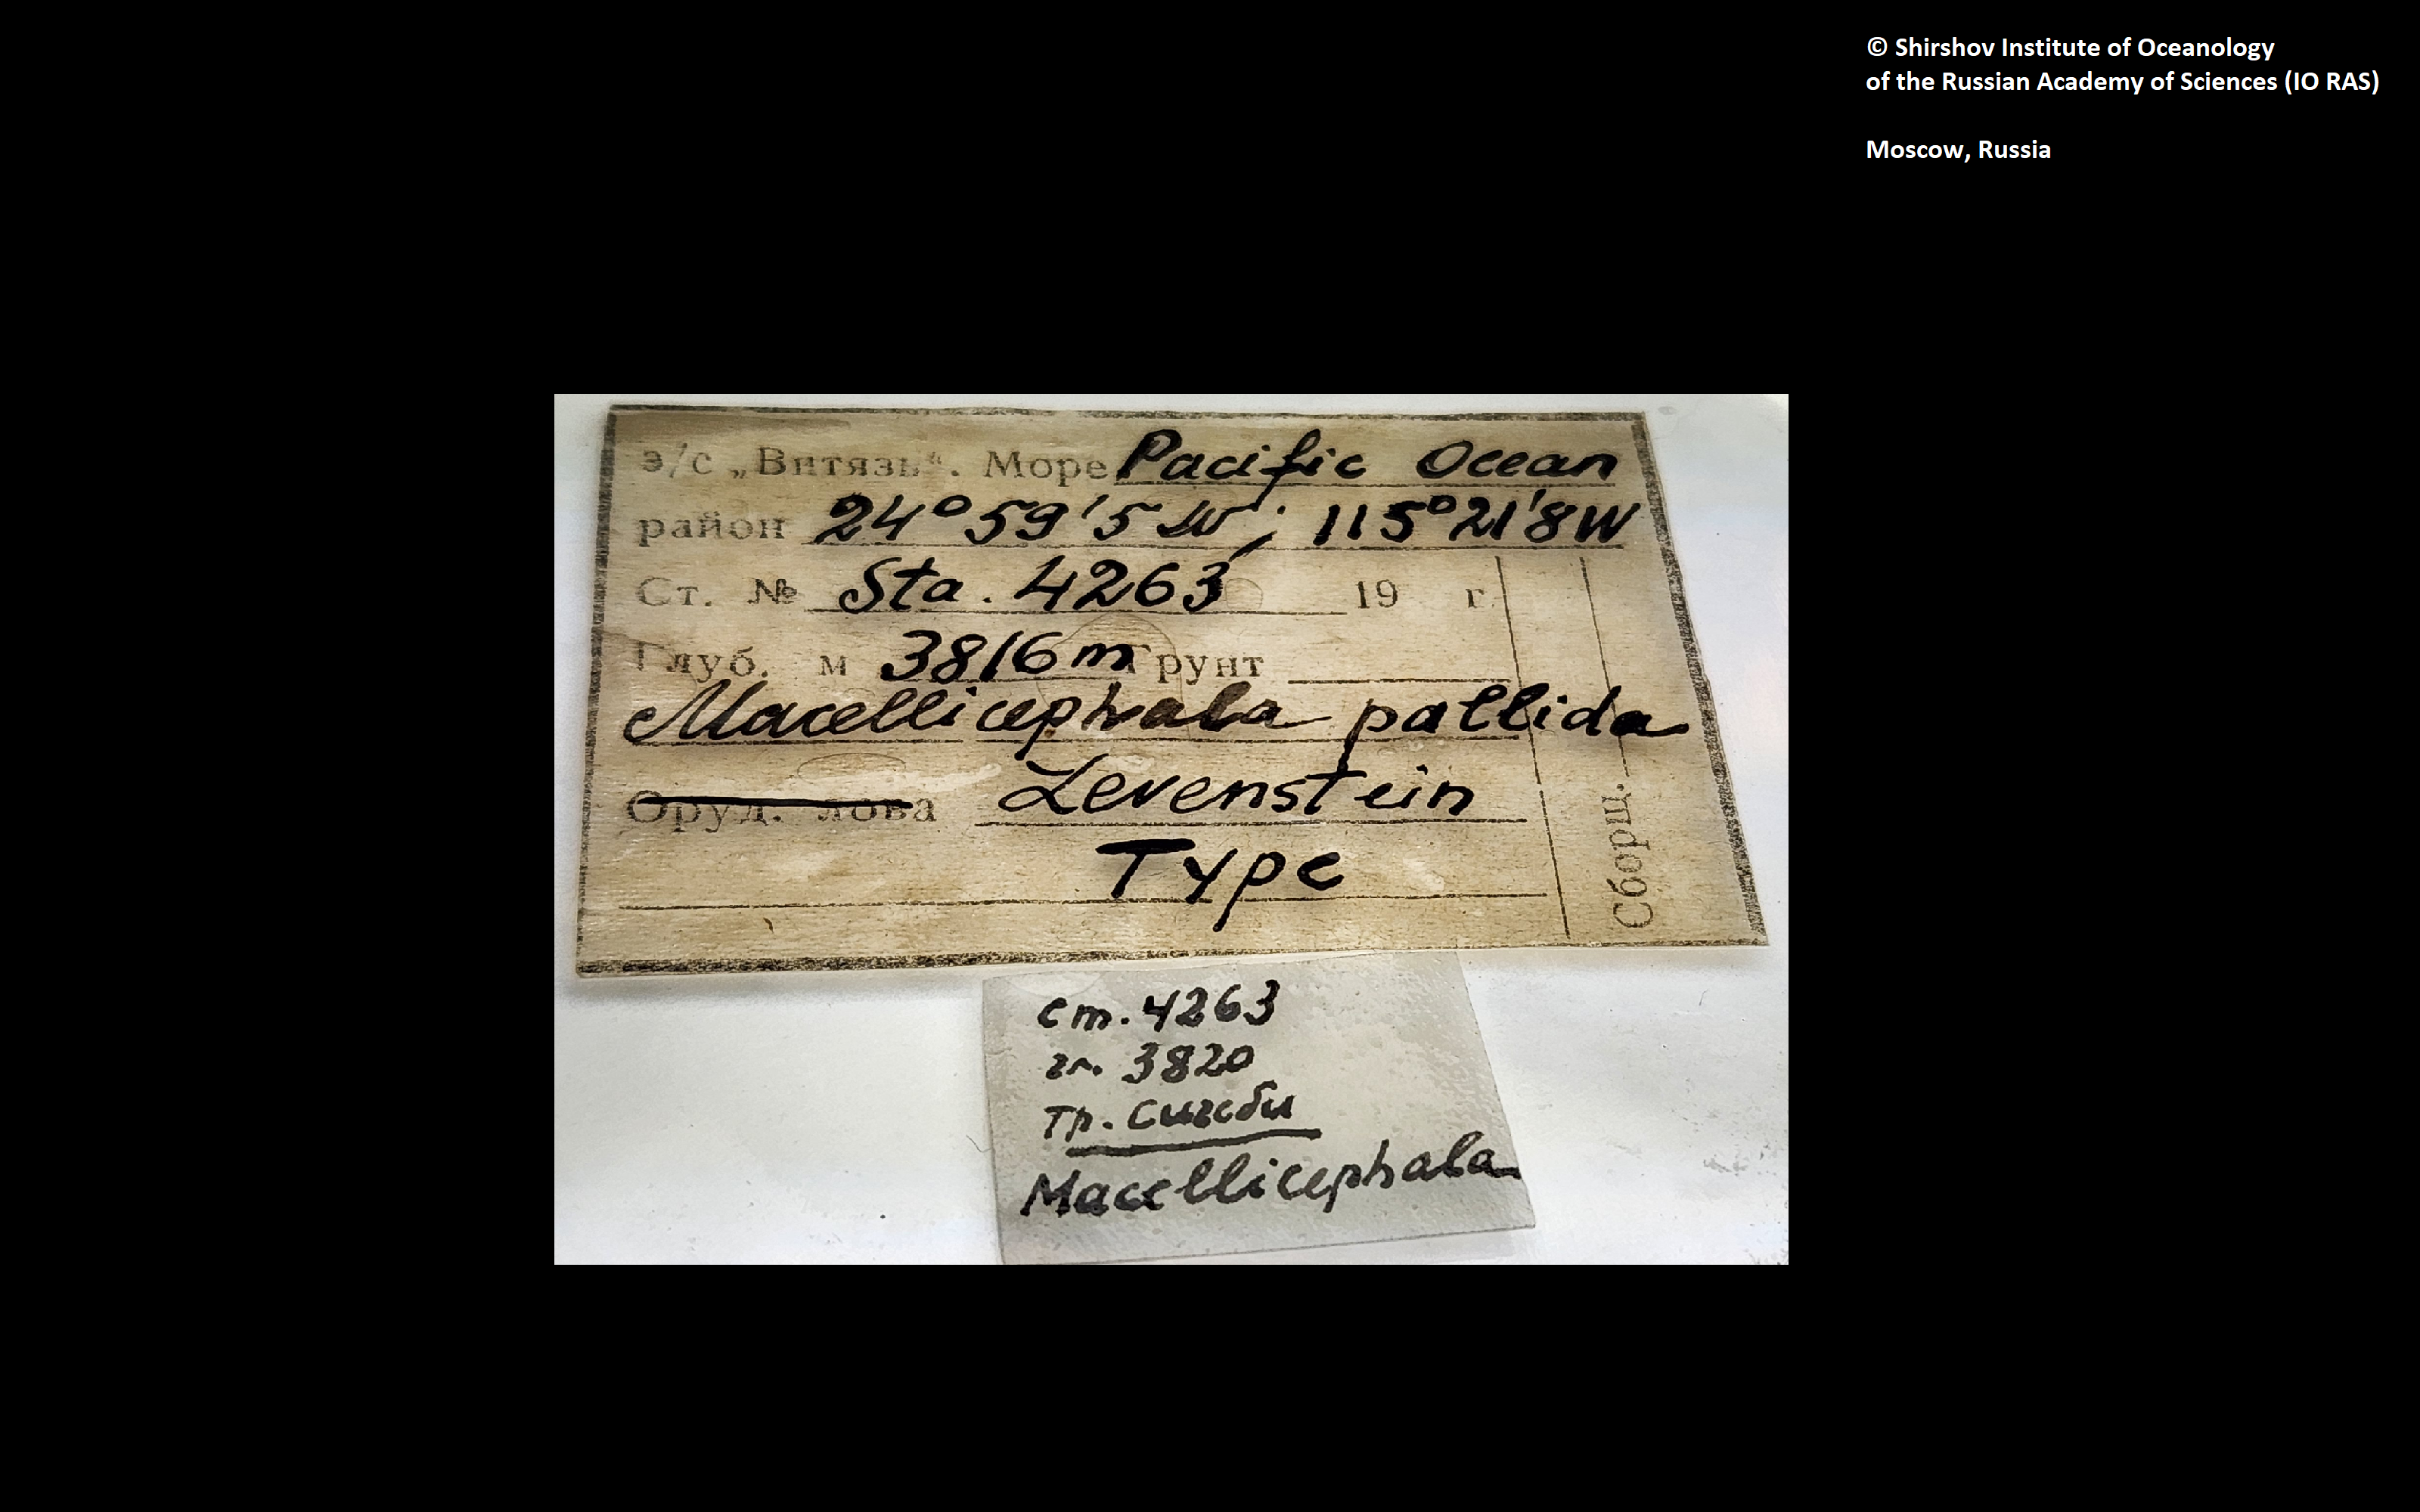 © Shirshov Institute of Oceanology
of the Russian Academy of Sciences (IO RAS)
Moscow, Russia
э/с „Витязь“. Море Pacific Ocean
район 24°59'5 W; 115°21'8W
Ст. № Sta. 4263 19 г.
Глуб. м 3816 m Грунт
Macellicephala pallida
Оруд. лова Levenstein
Type
Сборщ.
ст. 4263
гл. 3820
Тр. Сигсби
Macellicephala